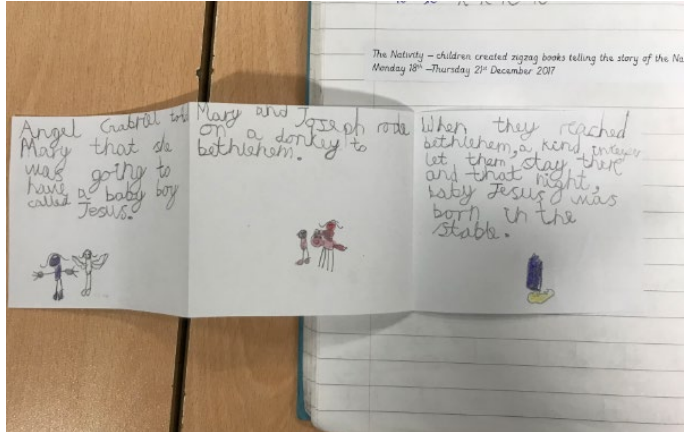 The Nativity – children created zigzag books telling the story of the Na
Monday 18th – Thursday 21st December 2017
Angel Gabriel told
Mary that she
was going to
have a baby boy
called Jesus.
Mary and Joseph rode
on a donkey to
bethlehem.
When they reached
bethlehem, a kind
let them stay there
and that night,
baby Jesus was
born in the
stable.